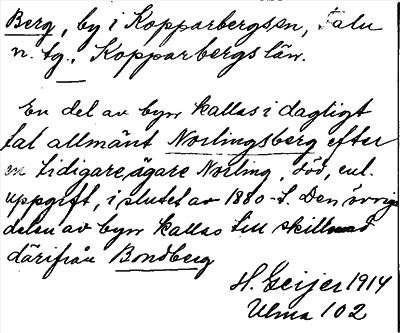 Berg, by i Kopparbergs sn, Falu
n. tg., Kopparbergs län.
En del av byn kallas i dagligt
tal allmänt Norlingsberg efter
en tidigare ägare Norling, död, enl.
uppgift, i slutet av 1880-t. Den övriga
delen av byn kallas till skillnad
därifrån Bondberg
H. Geijer 1914
Ulma 102